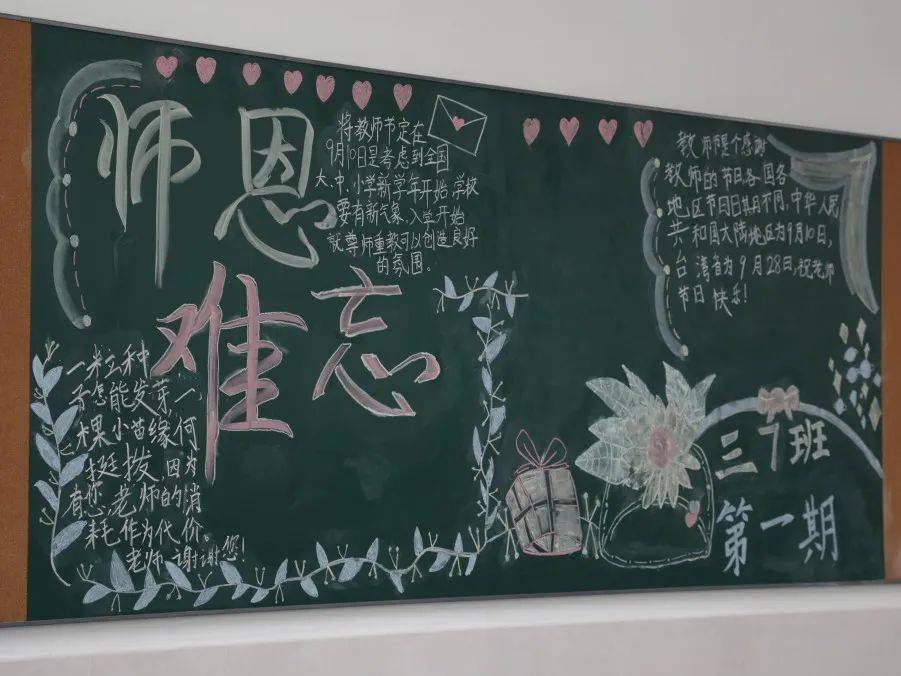 师恩
难忘
将教师节定在
9月10日是考虑到全国
大、中、小学新学年开始,学校
要有新气象、入学开始
就尊师重教可以创造良好
的氛围。
一粒种
子怎能发芽,一
棵小苗缘何
挺拨,因为
有您,老师的消
耗作为代价。
老师,谢谢您!
教师节是个感谢
教师的节日,各国各
地区节日日期不同,中华人民
共和国大陆地区为9月10日,
台湾省为9月28日,祝老师
节日快乐!
三7班
第一期